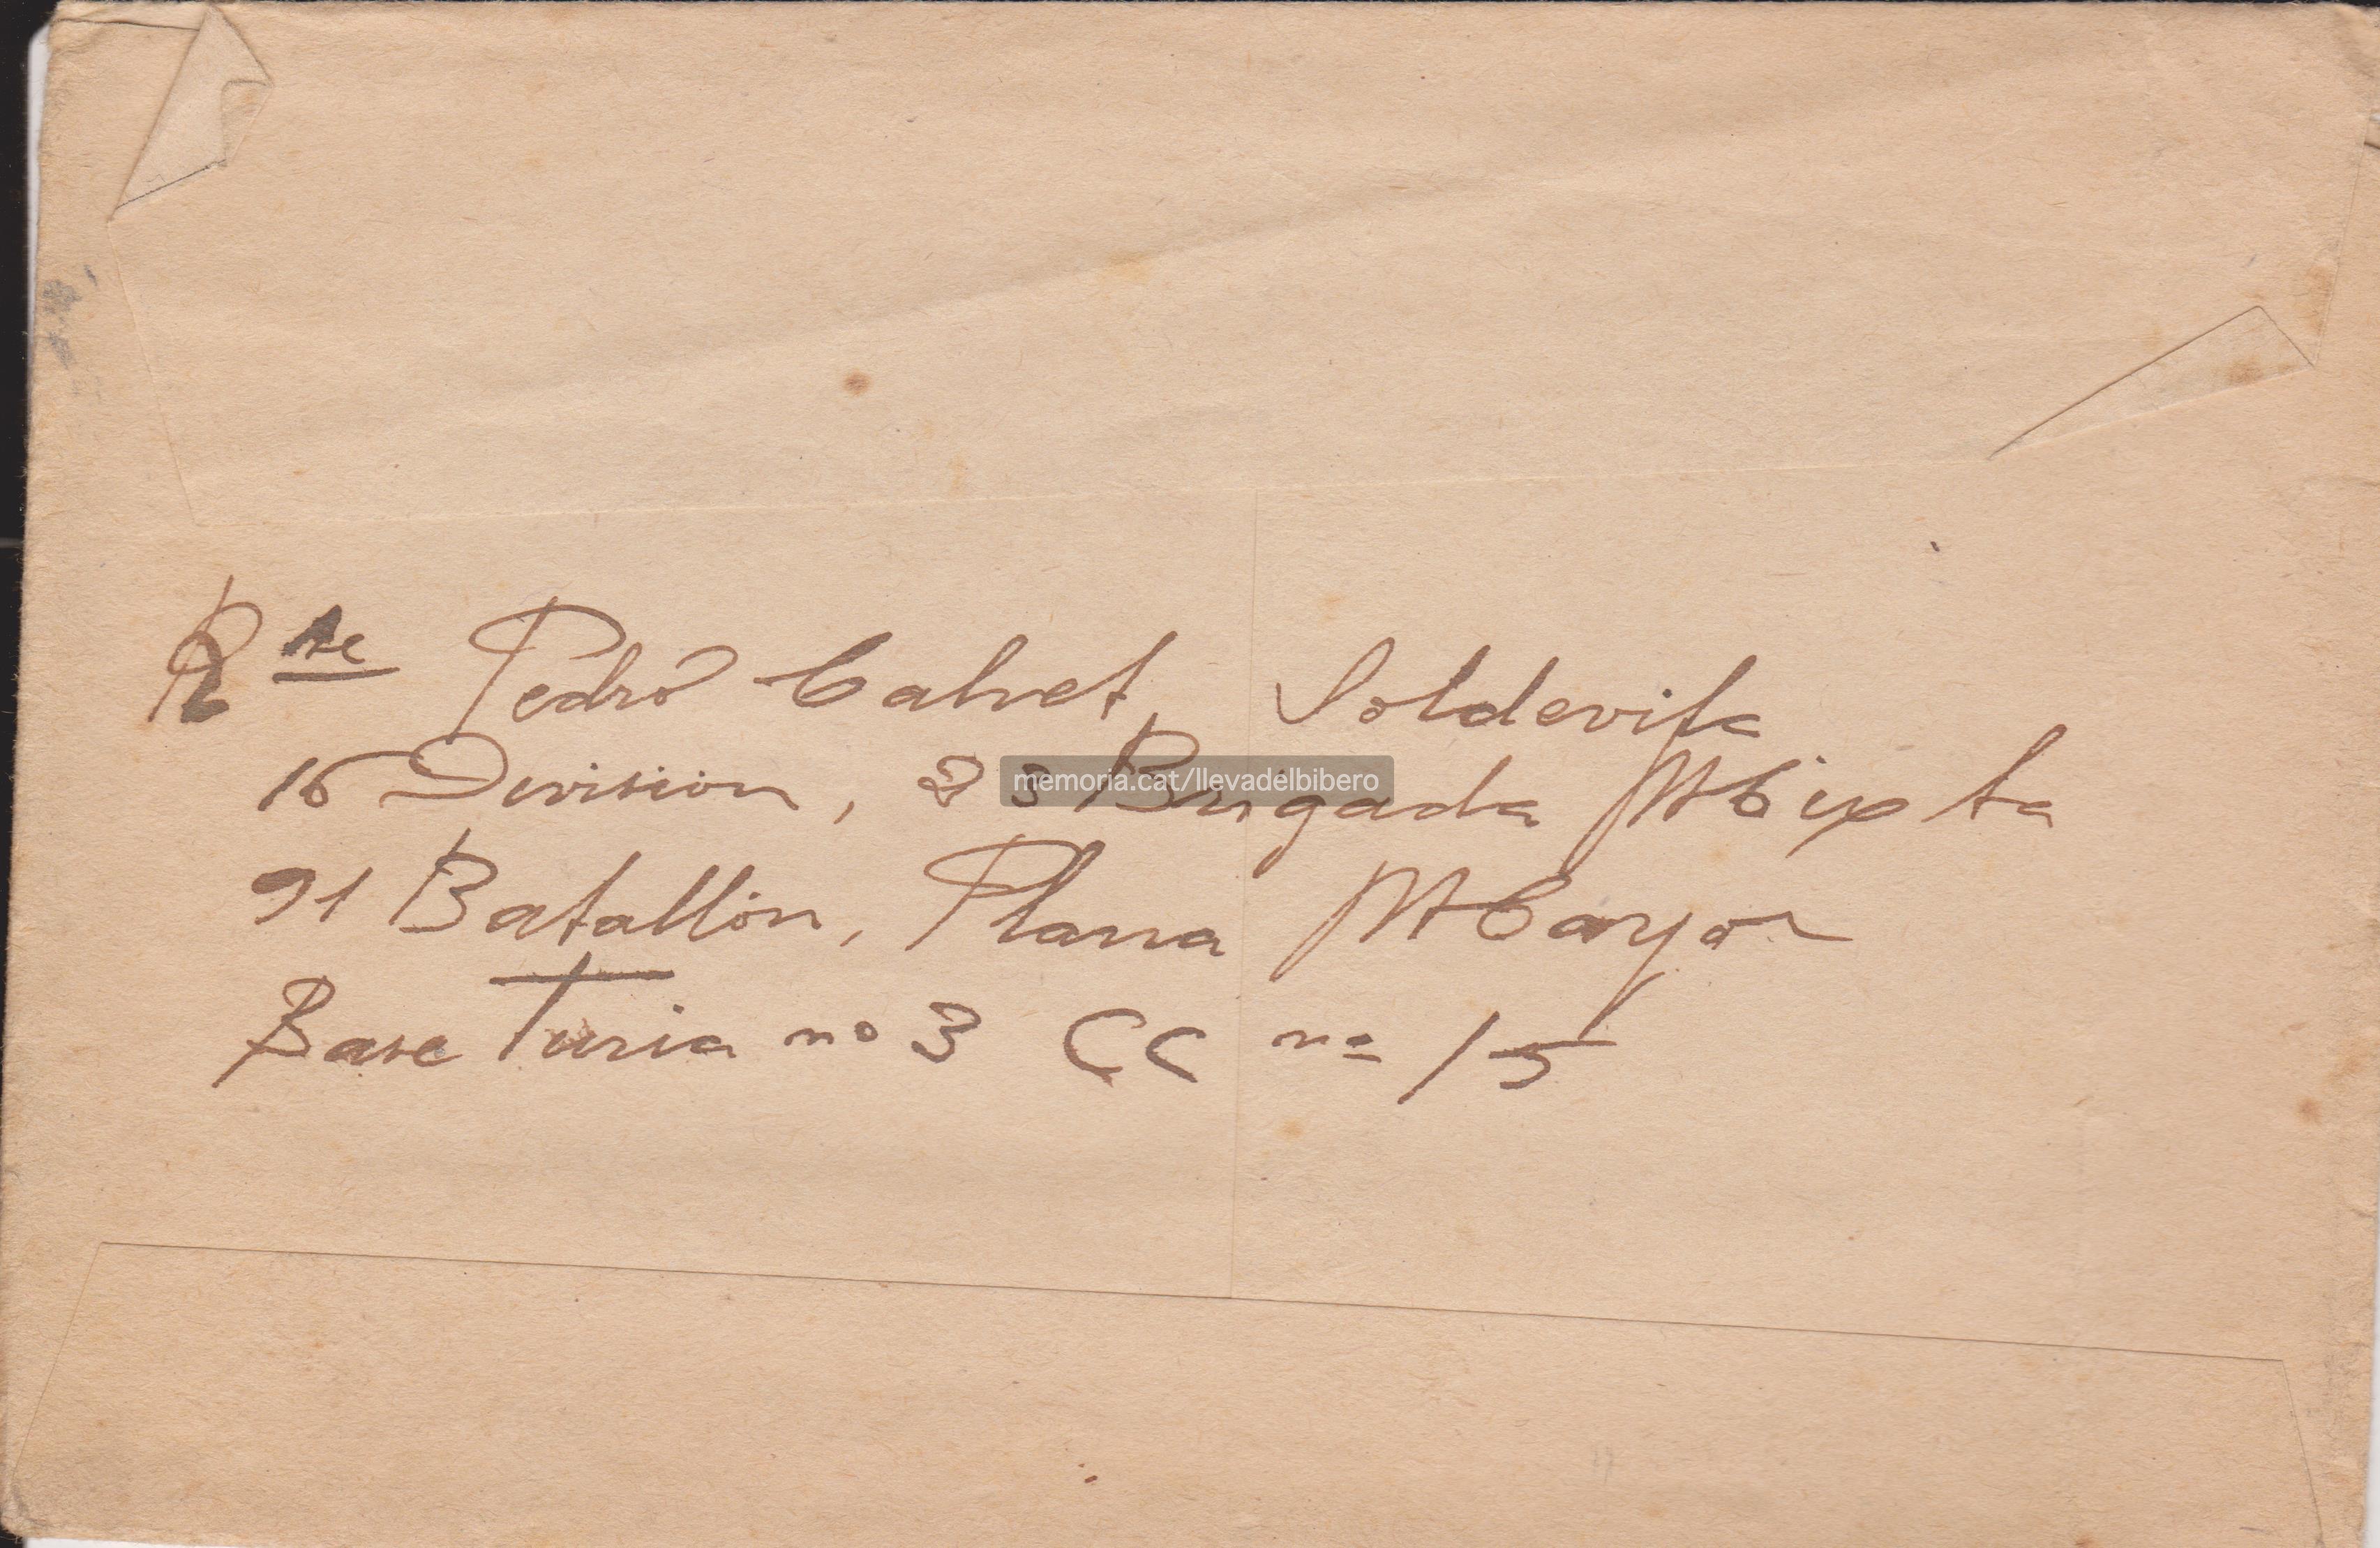 Rte Pedro Calvet Soldevila
16 Division, 23 Brigada Mixta
memoria.cat/llevadelbibero
91 Batallón, Plana Mayor
Base Turia nº 3 CC nº 15